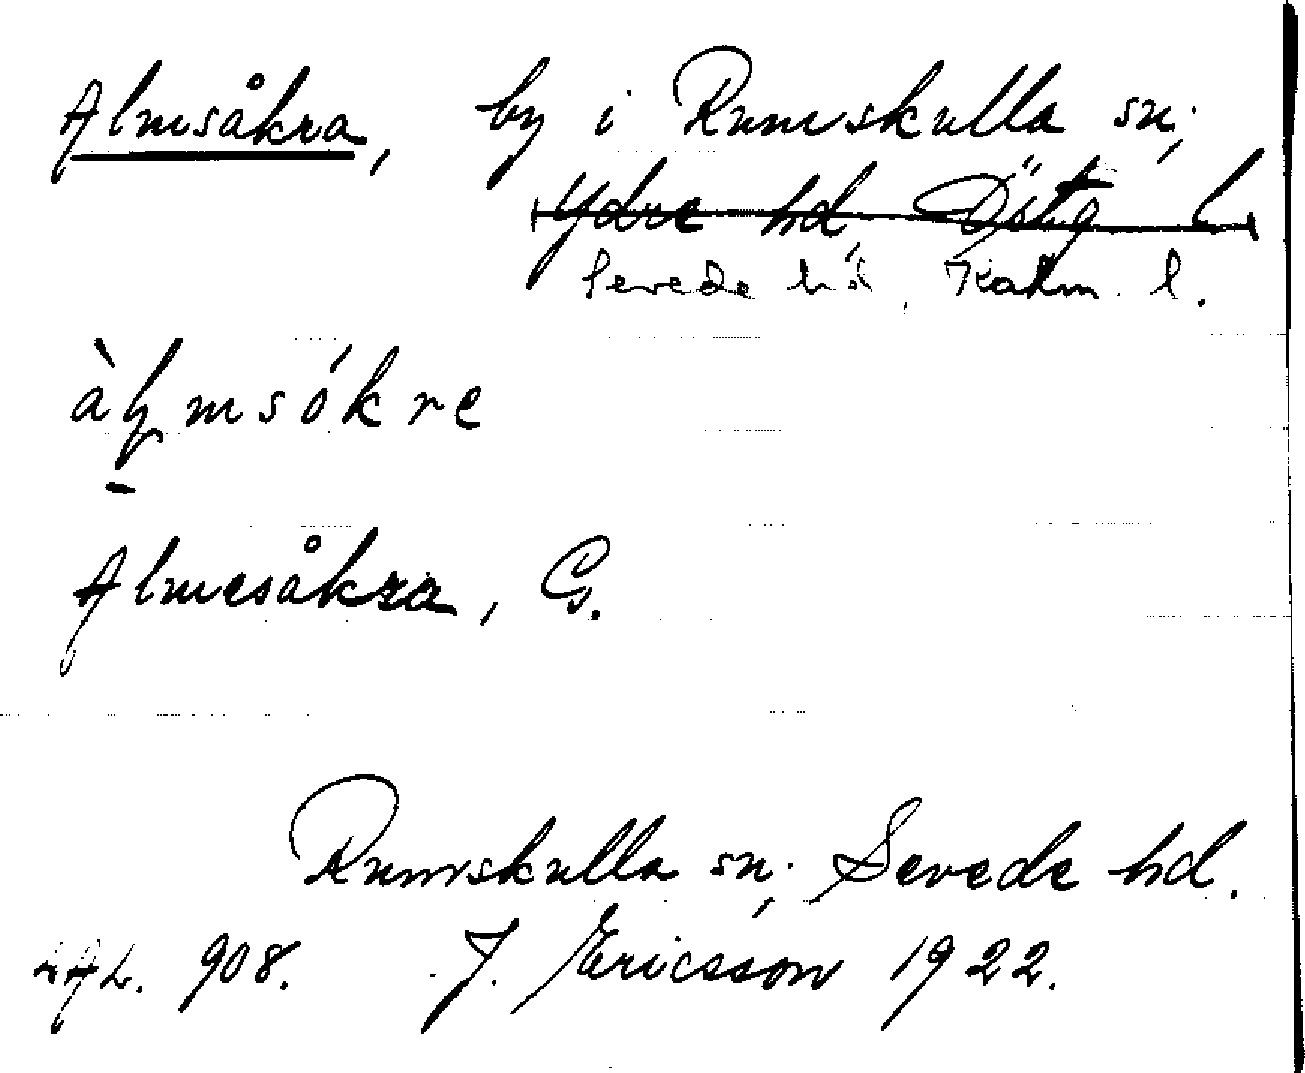 Almsåkra, by i Rumskulla sn;
Ydre hd, Östg l
Sevede hd, Kalm. l.
àl̥msókre
Almesåkra, G.
Rumskulla sn; Sevede hd.
908. J. Ericsson 1922.